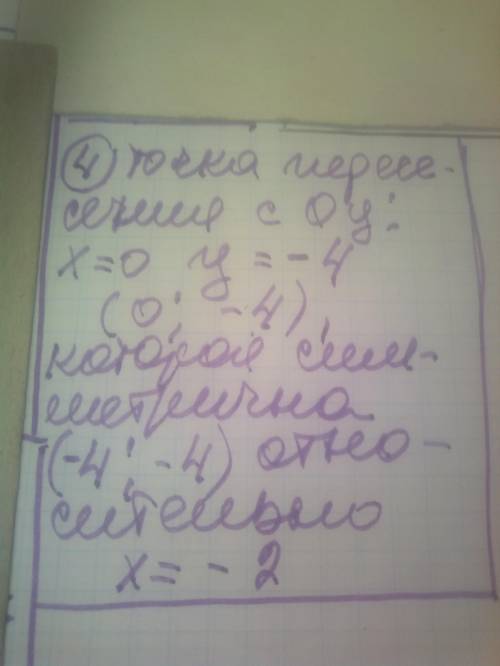 ④ точка пересе-
чения с Oy:
x=0 y = -4
(0; -4),
которая сим-
метрична
(-4; -4) отно-
сительно
x = -2